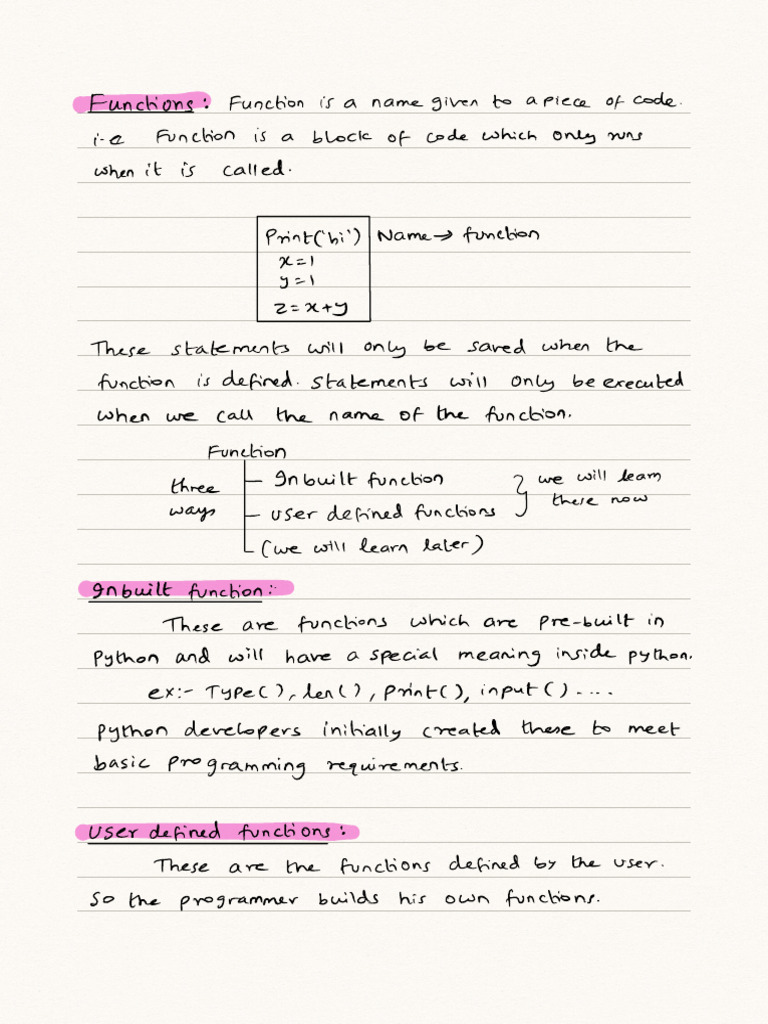 Functions: Function is a name given to a piece of code.
i.e Function is a block of code which only runs
when it is called.
Print('hi') Name → function
x=1
y=1
z=x+y
These statements will only be saved when the
function is defined. Statements will only be executed
when we call the name of the function.
Function
three ways
Inbuilt function
user defined functions
we will learn these now
(we will learn later)
Inbuilt function:-
These are functions which are pre-built in
Python and will have a special meaning inside python.
ex:- Type(), len(), print(), input() ....
python developers initially created these to meet
basic programming requirements.
User defined functions:
These are the functions defined by the user.
So the programmer builds his own functions.